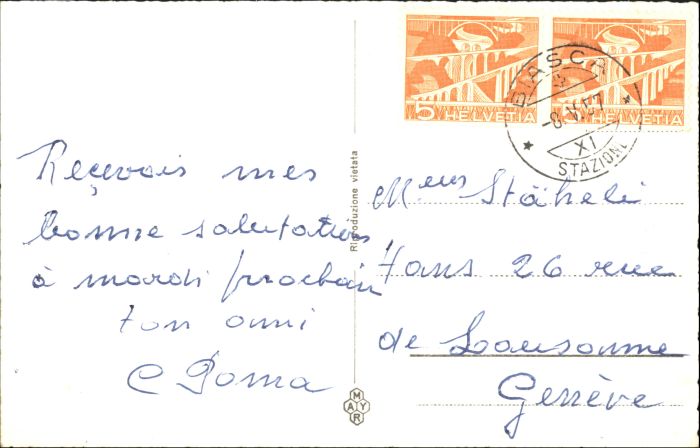 Reçevois mes
bonne salutations
à mardi prochain
ton ami
C Poma
Riproduzione vietata
MAYR
5 HELVETIA
5 HELVETIA
BIASCA
XI
STAZIONE
Mens Stäheli
Hans 26 rue
de Lausanne
Genève